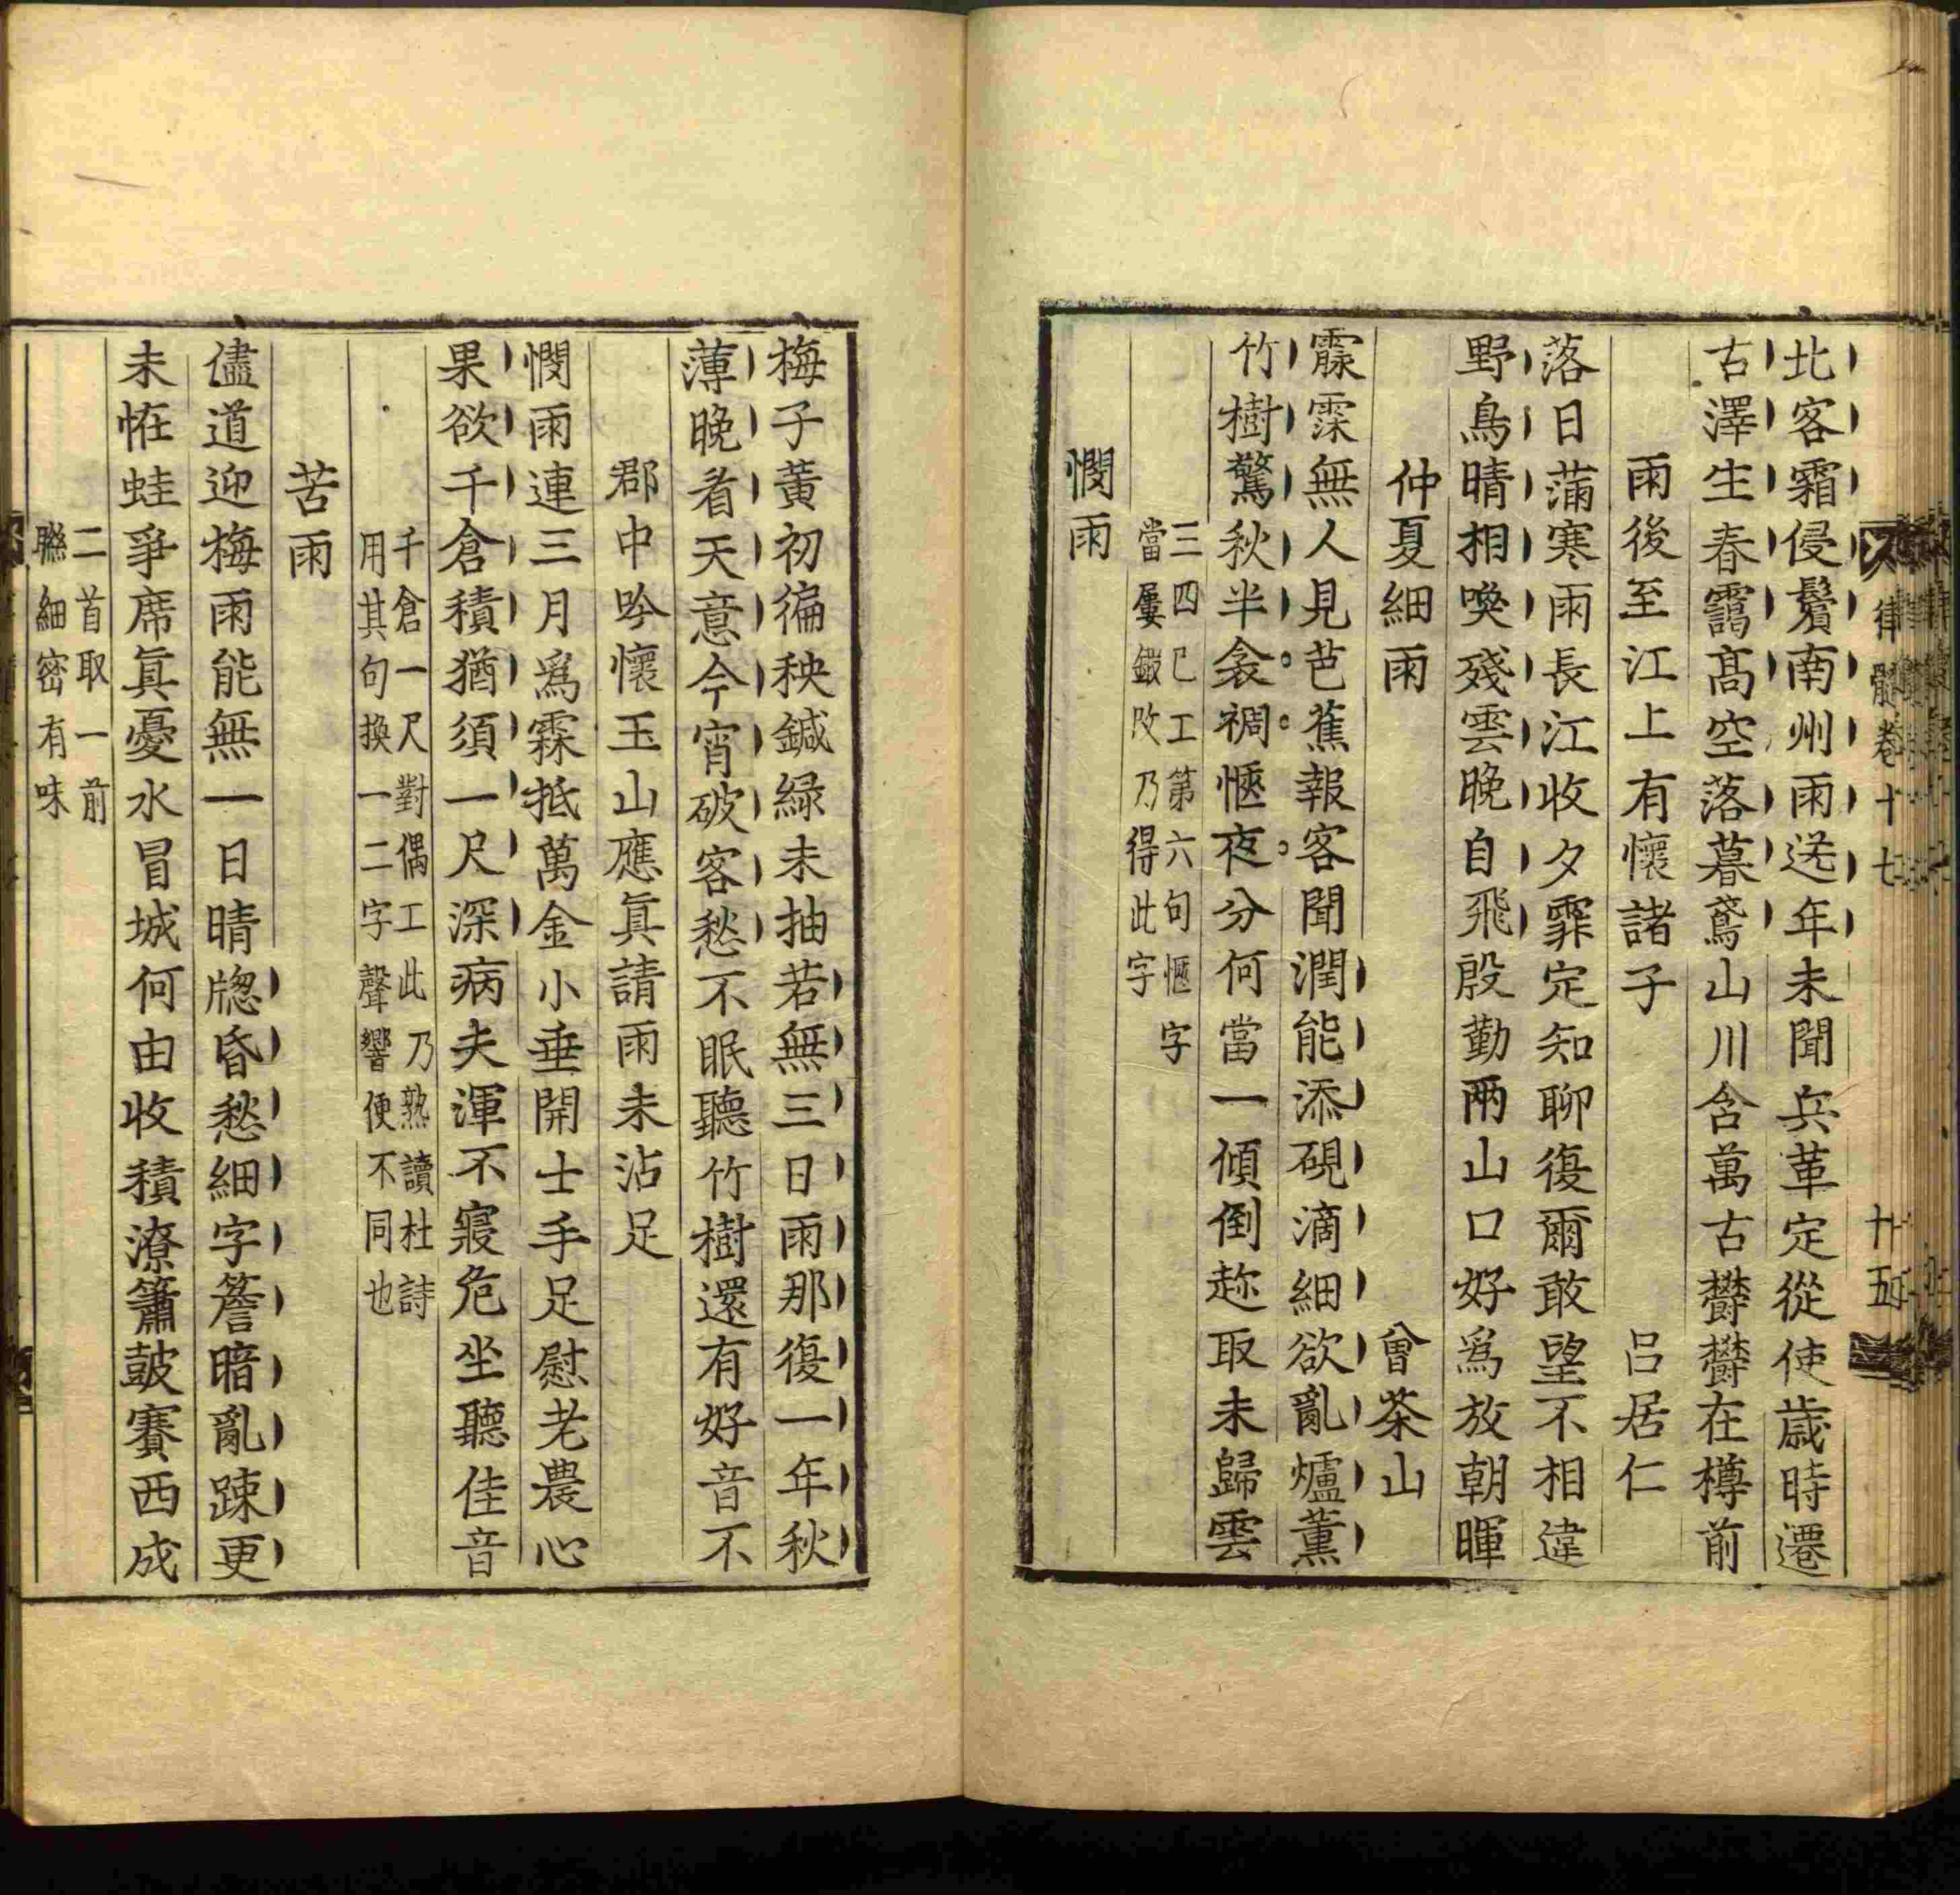 律髓卷十七 十五
北客霜侵鬢南州雨送年未聞兵革定從使歲時遷
古澤生春靄高空落暮鳶山川含萬古鬱鬱在樽前
雨後至江上有懷諸子 呂居仁
落日蒲寒雨長江收夕霏定知聊復爾敢望不相違
野鳥晴相喚殘雲晚自飛殷勤兩山口好爲放朝暉
仲夏細雨 曾茶山
霢霂無人見芭蕉報客聞潤能添硯滴細欲亂爐薰
竹樹驚秋半衾裯愜夜分何當一傾倒趂取未歸雲
三四已工第六句愜字
當屢鍛改乃得此字
憫雨
梅子黃初徧秧鍼綠未抽若無三日雨那復一年秋
薄晚看天意今宵破客愁不眠聽竹樹還有好音不
郡中吟懷玉山應眞請雨未沾足
憫雨連三月爲霖抵萬金小垂開士手足慰老農心
果欲千倉積猶須一尺深病夫渾不寢危坐聽佳音
千倉一尺對偶工此乃熟讀杜詩
用其句換一二字聲響便不同也
苦雨
儘道迎梅雨能無一日晴牕昏愁細字簷暗亂踈更
未恠蛙爭席眞憂水冒城何由收積潦簫鼓賽西成
二首取一前
聯細密有味